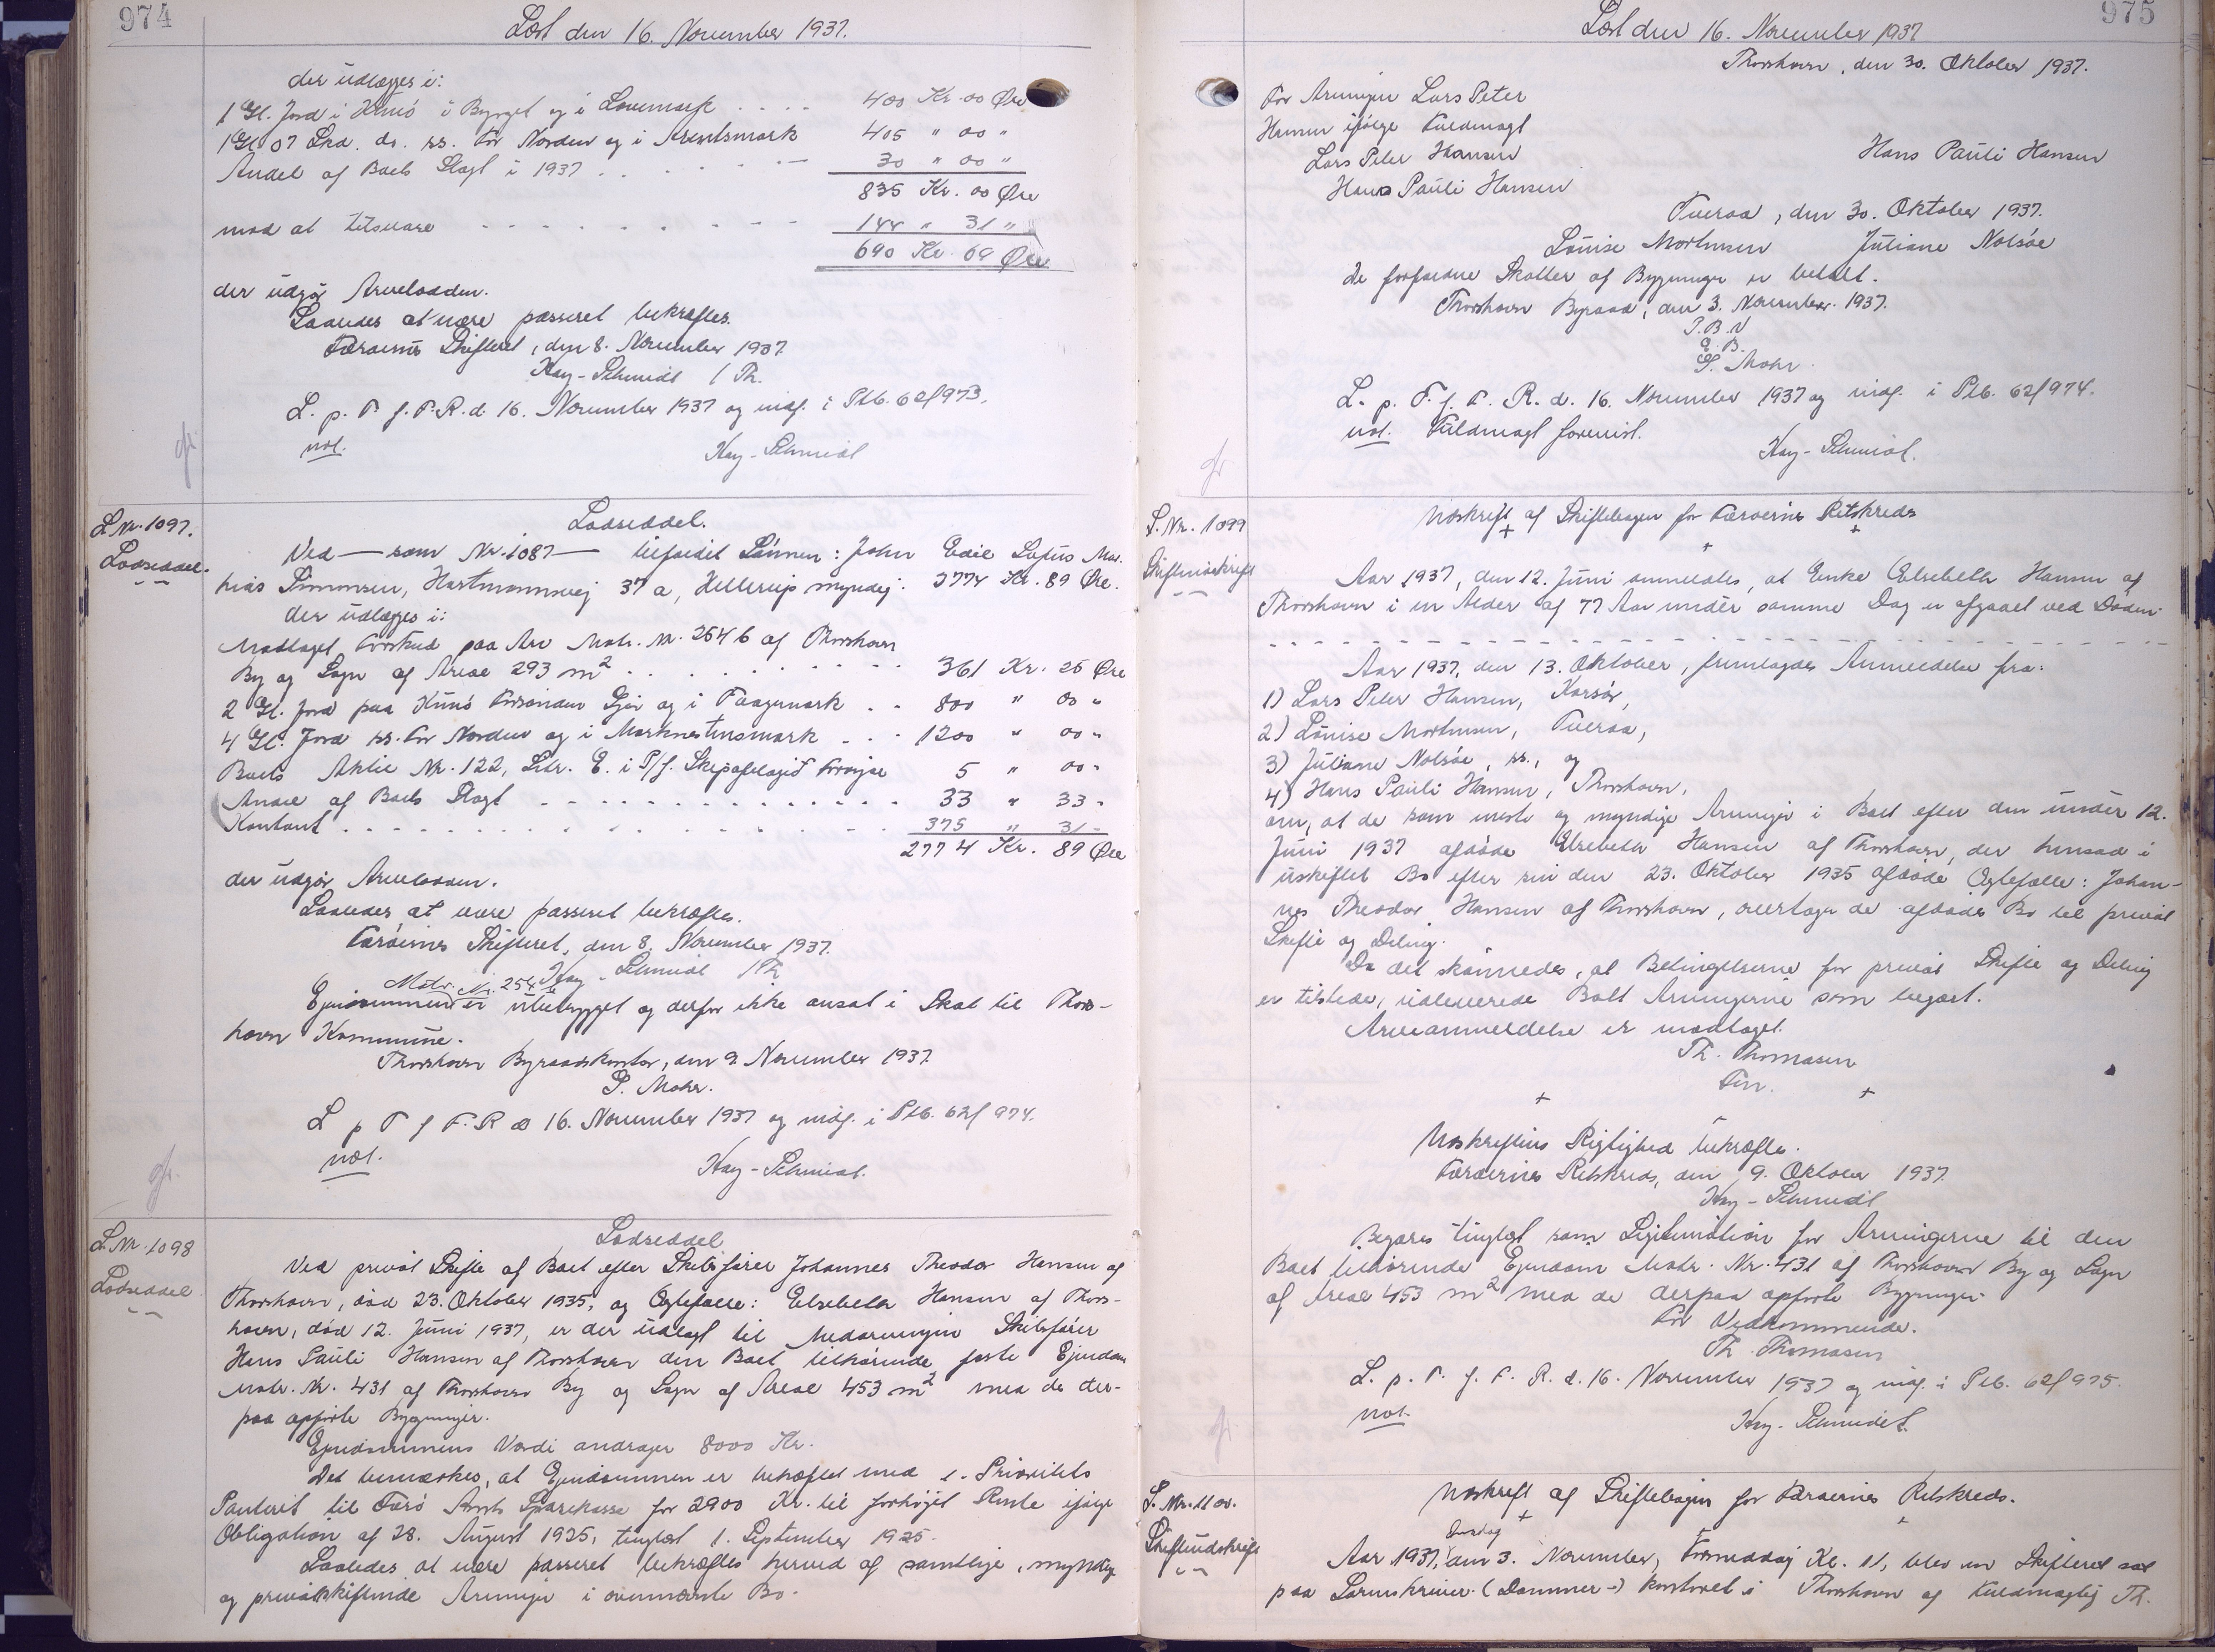 974
Læst den 16. November 1937.
der udlægges i:
1 Gl. Jord i Kunø i Bygget og i Lonemark . . . . 400 Kr. 00 Øre
1 Gl. 07 Skd. do. ss. For Norden og i Arentsmark 405 " 00 "
Andel af Boets Slagt i 1937 . . . . . 30 " 00 "
835 Kr. 00 Øre
mod at tilsvare - - - - - - - 144 " 31 "
690 Kr. 69 Øre
der udgør Arvelodden.
Saaledes at være passeret bekræftes.
Færøernes Skifteret, den 8. November 1937.
Kay-Schmidt / Th.
L. p. T. f. F. R. d. 16. November 1937 og indf. i Ptb. 62/973.
not.
Kay-Schmidt
gr.
L. Nr. 1097.
Lodseddel.
Lodseddel.
Ved — som Nr. 1087 — tilfaldet Sønnen: John Edil Lufus Mat-
hias Simonsen, Hartmannsvej 37 a, Hellerup myndig: 2774 Kr. 89 Øre.
der udlægges i:
Modtaget Forskud paa Arv Matr. Nr. 254 b af Thorshavn
By og Sogn af Areal 293 m2 . . . . . . . 361 Kr. 25 Øre
2 Gl. Jord paa Kunø Forsondan Gjov og i Faagumark . . 800 " 00 "
4 Gl. Jord ss. For Norden og i Marknastunsmark - - - 1200 " 00 "
Boets Aktie Nr. 122, Litr. E. i P/f. Skipafelagið Føroyar 5 " 00 "
Andel af Boets Slagt - - - - - - - - - - - - 33 " 33 "
Kontant . . . . . . . . . . . . . . 375 " 31 -
2774 Kr. 89 Øre
der udgør Arvelodden.
Saaledes at være passeret bekræftes.
Færøernes Skifteret, den 8. November 1937.
Kay-Schmidt / Th
Matr. Nr. 254 b
Ejendommen er ubebygget og derfor ikke ansat i Skat til Thors-
havn Kommune.
Thorshavn Byraadskontor, den 9. November 1937.
S. Mohr.
L p T f F. R d 16. November 1937 og indf. i Ptb. 62/974.
not.
Kay-Schmidt.
gr.
L. Nr. 1098
Lodseddel
Lodseddel
Ved privat Skifte af Boet efter Skibsfører Johannes Theodor Hansen af
Thorshavn, død 23. Oktober 1935, og Ægtefælle: Elsebeth Hansen af Thors-
havn, død 12. Juni 1937, er der udlagt til Medarvingen Skibsfører
Hans Pauli Hansen af Thorshavn den Boet tilhørende faste Ejendom
Matr. Nr. 431 af Thorshavn By og Sogn af Areal 453 m2 med de der-
paa opførte Bygninger.
Ejendommens Værdi andrager 8000 Kr.
Det bemærkes, at Ejendommen er behæftet med 1. Prioritets
Panteret til Færø Amts Sparekasse for 2900 Kr. til forhøjet Rente ifølge
Obligation af 28. August 1925, tinglæst 1. September 1925.
Saaledes at være passeret bekræftes herved af samtlige, myndige
og privatskiftende Arvinger i ovennævnte Bo.
975
Læst den 16. November 1937
Thorshavn, den 30. Oktober 1937.
For Arvingen Lars Peter
Hansen ifølge Fuldmagt
Lars Peter Hansen
Hans Pauli Hansen
Hans Pauli Hansen
Tveraa, den 30. Oktober 1937.
Louise Mortensen Juliane Nolsøe
De forfaldne Skatter af Bygningen er betalt.
Thorshavn Byraad, den 3. November 1937.
P. B. V
E. B.
S. Mohr.
L. p. T. f. F. R. d. 16. November 1937 og indf. i Ptb. 62/974.
not. Fuldmagt forevist.
Kay-Schmidt.
gr
L. Nr. 1099
Skifteudskrift
Udskrift af Skiftebogen for Færøernes Retskreds
Aar 1937, den 12. Juni anmeldtes, at Enke Elsebeth Hansen af
Thorshavn i en Alder af 77 Aar under samme Dag er afgaaet ved Døden.
Aar 1937, den 13. Oktober, fremlagdes Anmeldelse fra:
1) Lars Peter Hansen, Korsør,
2) Louise Mortensen, Tveraa,
3) Juliane Nolsøe, ss., og
4) Hans Pauli Hansen, Thorshavn,
om, at de som eneste og myndige Arvinger i Boet efter den under 12.
Juni 1937 afdøde Elsebeth Hansen af Thorshavn, der hensad i
uskiftet Bo efter sin den 23. Oktober 1935 afdøde Ægtefælle: Johan-
nes Theodor Hansen af Thorshavn, overtager de afdødes Bo til privat
Skifte og Deling.
Da det skønnedes, at Betingelserne for privat Skifte og Deling
er tilstede, udleverede Boet Arvingerne som begært.
Arveanmeldelse er modtaget.
Th. Thomasen
Fm.
Udskriftens Rigtighed bekræftes.
Færøernes Retskreds, den 9. Oktober 1937.
Kay-Schmidt
Begæres tinglæst som Legitimation for Arvingerne til den
Boet tilhørende Ejendom Matr. Nr. 431 af Thorshavn By og Sogn
af Areal 453 m2 med de derpaa opførte Bygninger.
For Vedkommende.
Th. Thomasen
L. p. T. f. F. R. d. 16. November 1937 og indf. i Ptb. 62/975.
not.
Kay-Schmidt.
gr
L. Nr. 1100.
Skifteudskrift
Udskrift af Skiftebogen for Færøernes Retskreds.
Onsdag
Aar 1937, den 3. November, Formiddag Kl. 11, blev en Skifteret sat
paa Sorenskriver (Dommer-) kontoret i Thorshavn af Fuldmægtig Th.